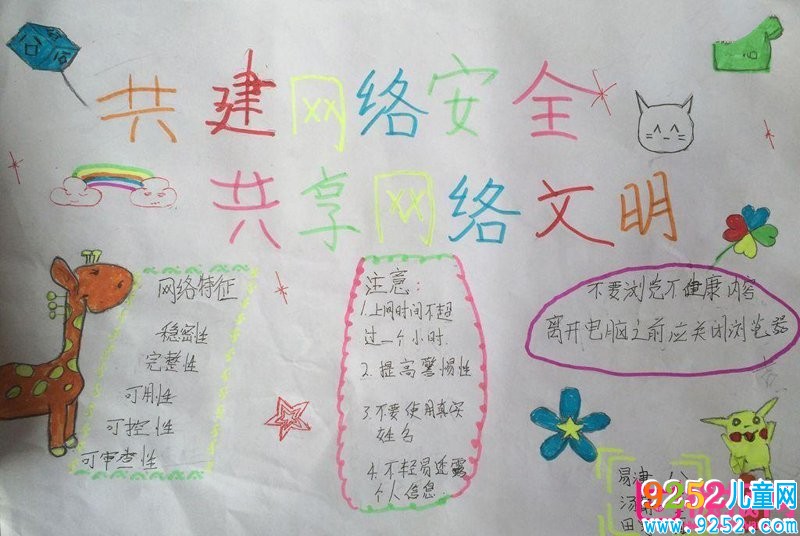 共建网络安全
共享网络文明
网络特征
稳密性
完整性
可用性
可控性
可审查性
注意:
1.上网时间不超
过一个小时.
2.提高警惕性
3.不要使用真实
姓名
4.不轻易透露
个人信息.
不要浏览不健康内容
离开电脑之前应关闭浏览器
汤
田
9252儿童网
www.9252.com